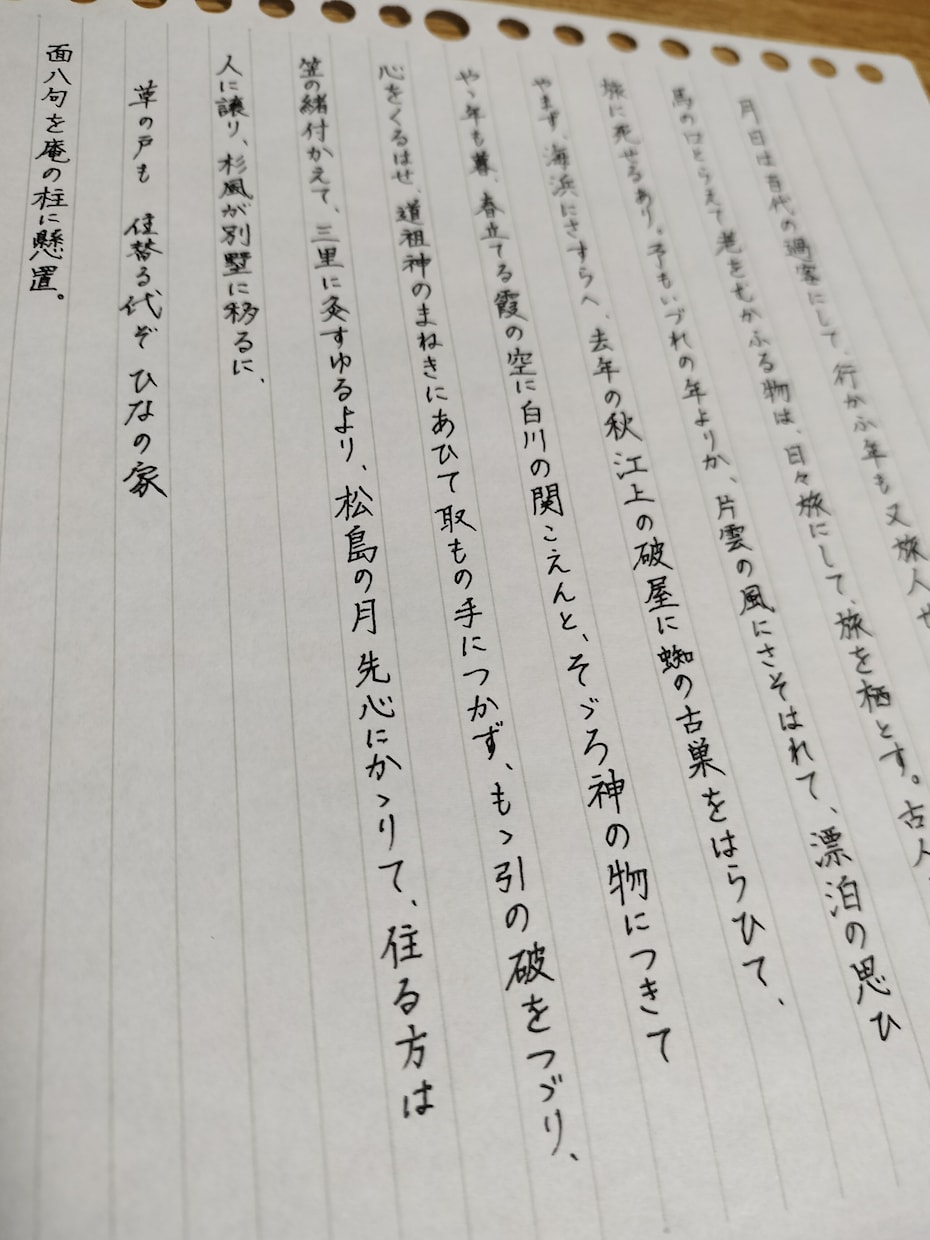 月日は百代の過客にして、行かふ年も又旅人也
馬の口とらえて老をむかふる物は、日々旅にして、旅を栖とす。古人
旅に死せるあり。予もいづれの年よりか、片雲の風にさそはれて、漂泊の思ひ
やまず、海浜にさすらへ、去年の秋江上の破屋に蜘の古巣をはらひて、
やゝ年も暮、春立てる霞の空に白川の関こえんと、そゞろ神の物につきて
心をくるはせ、道祖神のまねきにあひて取もの手につかず、もゝ引の破をつゞり、
笠の緒付かえて、三里に灸すゆるより、松島の月先心にかゝりて、住る方は
人に譲り、杉風が別墅に移るに、
草の戸も 住替る代ぞ ひなの家
面八句を庵の柱に懸置。